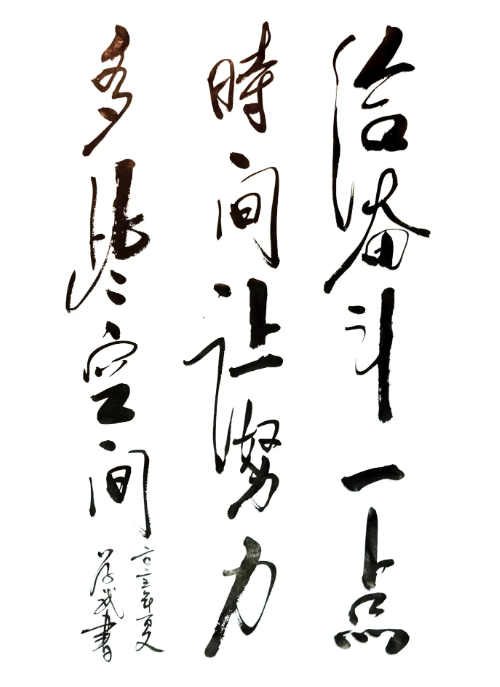 给奋斗一点
時间让努力
多些空间
二〇二三年夏
書